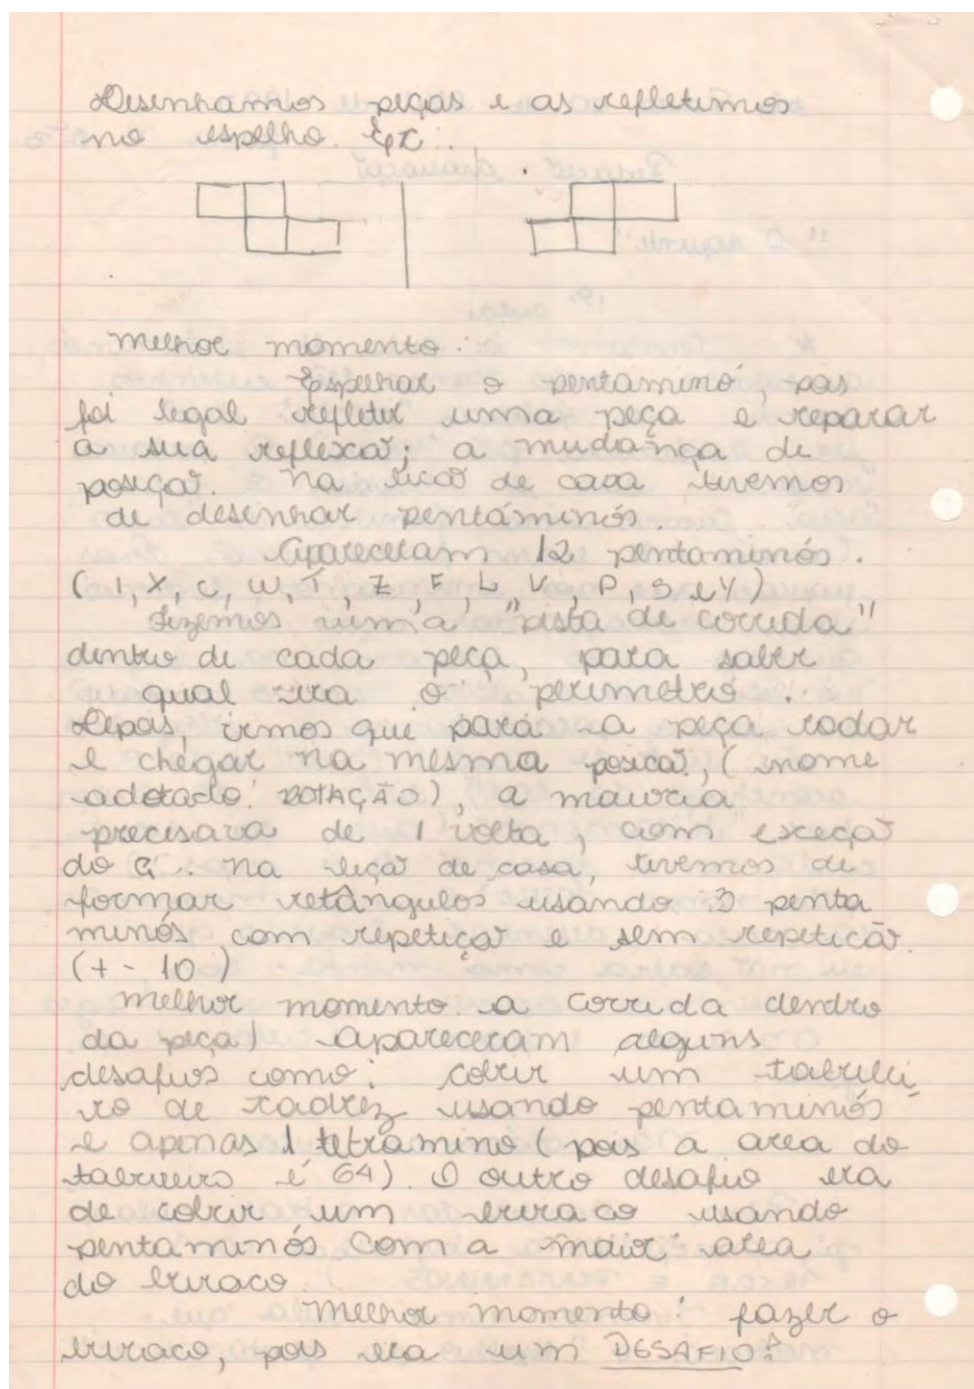 Desenhamos peças e as refletimos
no espelho. Ex:.
Melhor momento:
Espelhar o pentaminó, pois
foi legal refletir uma peça e reparar
a sua reflexão; a mudança de
posição. Na lição de casa tivemos
de desenhar pentáminós
Apareceram 12 pentaminós.
(I, X, C, W, T, Z, F, L, V, P, S, e Y)
Fizemos uma "pista de corrida"
dentro de cada peça, para saber
qual era o perimetro.
Depois, vimos que para a peça rodar
e chegar na mesma posição, (nome
adotado: ROTAÇÃO), a maioria
precisava de 1 volta, com exeção
do . Na lição de casa, tivemos de
formar retângulos usando 3 penta
minós com repetição e sem repetição.
(+ - 10)
Melhor momento: a corrida dentro
da peça! Apareceram alguns
desafios como: cobrir um tabulei
ro de xadrez usando pentaminós
e apenas 1 tetramino (pois a area do
tabuleiro é 64). O outro desafio era
de cobrir um buraco usando
pentaminós com a maior area
do buraco.
Melhor momento: fazer o
buraco, pois era um DESAFIO!